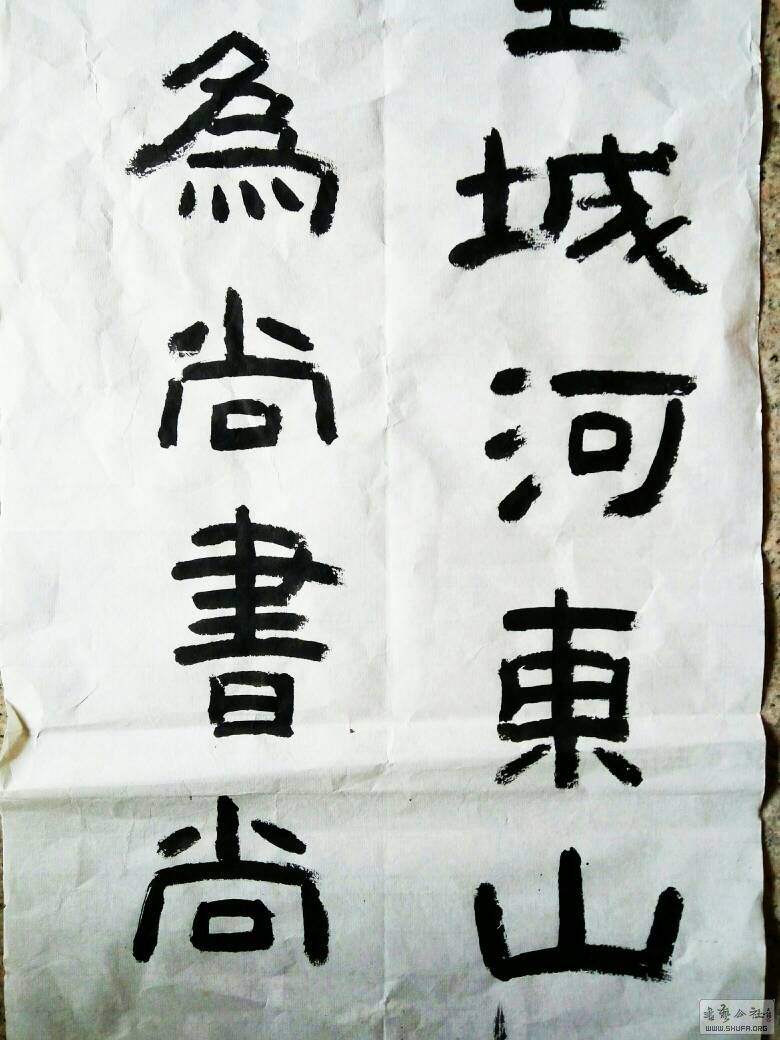 城河東山
為尚書尚
WWW.SHUFA.ORG